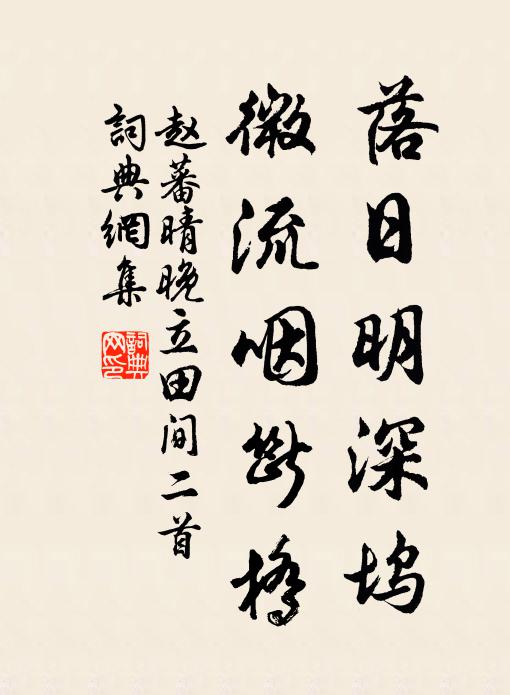 落日明深坞
微流咽断桥
赵蕃晴晚立田间二首
詞典網集
詞典网印